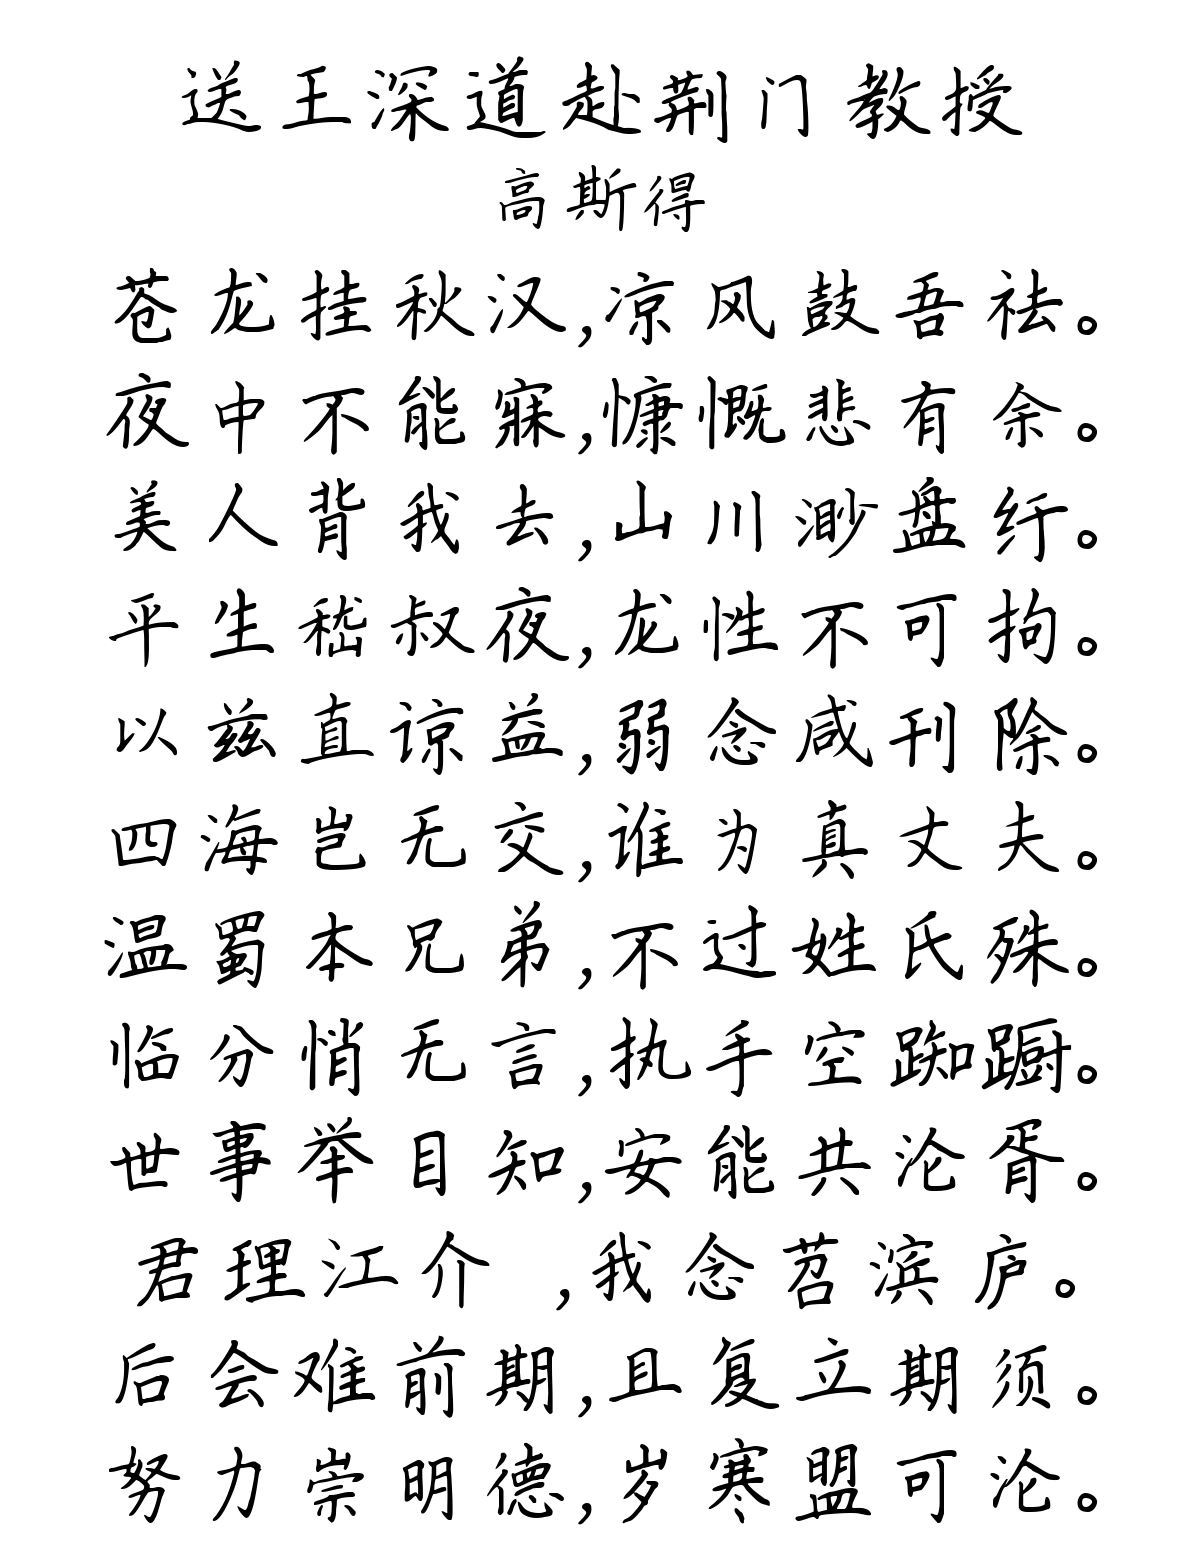 送王深道赴荆门教授
高斯得
苍龙挂秋汉,凉风鼓吾祛。
夜中不能寐,慷慨悲有余。
美人背我去,山川渺盘纡。
平生嵇叔夜,龙性不可拘。
以兹直谅益,弱念咸刊除。
四海岂无交,谁为真丈夫。
温蜀本兄弟,不过姓氏殊。
临分悄无言,执手空踟蹰。
世事举目知,安能共沦胥。
君理江介 ,我念苕滨庐。
后会难前期,且复立期须。
努力崇明德,岁寒盟可沦。